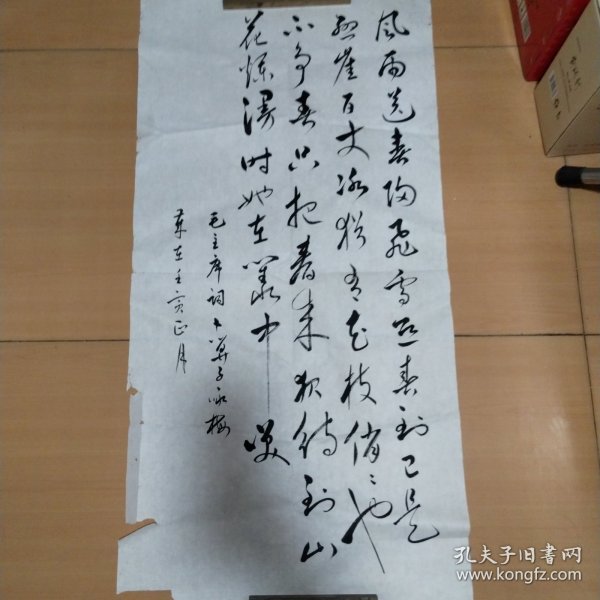 风雨送春归飞雪迎春到已是
悬崖百丈冰犹有花枝俏〻也
不争春只把春来报待到山
花烂漫时她在丛中笑
毛主席词卜算子咏梅
在壬寅正月
孔夫子旧书网
www.kongfz.com